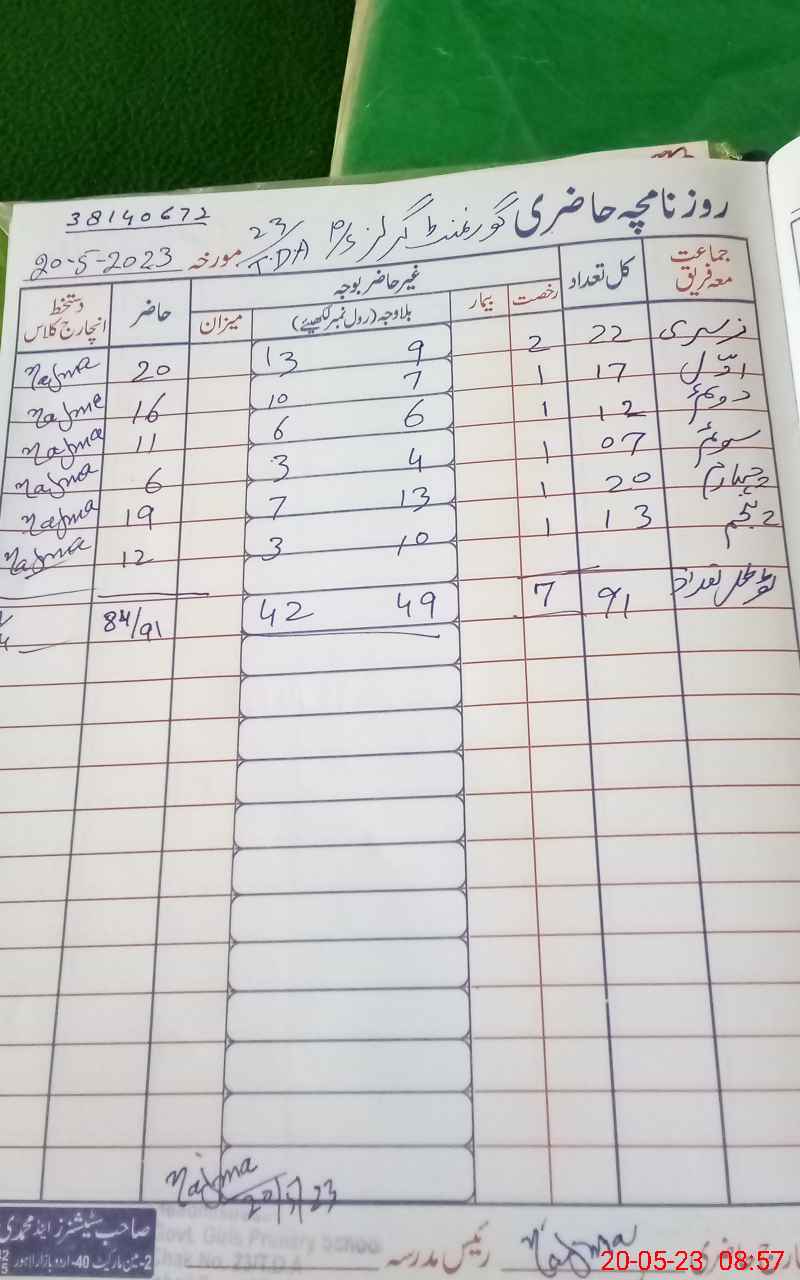 38140672
روزنامچہ حاضری گورنمنٹ گرلز P/S 23/T.DA مورخہ 20-5-2023
جماعت معہ فریق کل تعداد غیر حاضر بوجہ حاضر دستخط انچارج کلاس
رخصت بیمار بلاوجہ (رول نمبر لکھیئے) میزان
نرسری 22 2 9 13 20 Najma
اوّل 17 1 7 10 16 Najma
دوئم 12 1 6 6 11 Najma
سوئم 07 1 4 3 6 Najma
چہارم 20 1 13 7 19 Najma
پنجم 13 1 10 3 12 Najma
ٹوٹل تعداد 91 7 49 42 84/91
Najma
20/5/23
رئیس مدرسہ Najma
Govt. Girls Primary School
Chak No. 23/T.D.A
صاحب سٹیشنرز اینڈ محمدی
2-مین مارکیٹ 40-اردو بازار لاہور
20-05-23 08:57